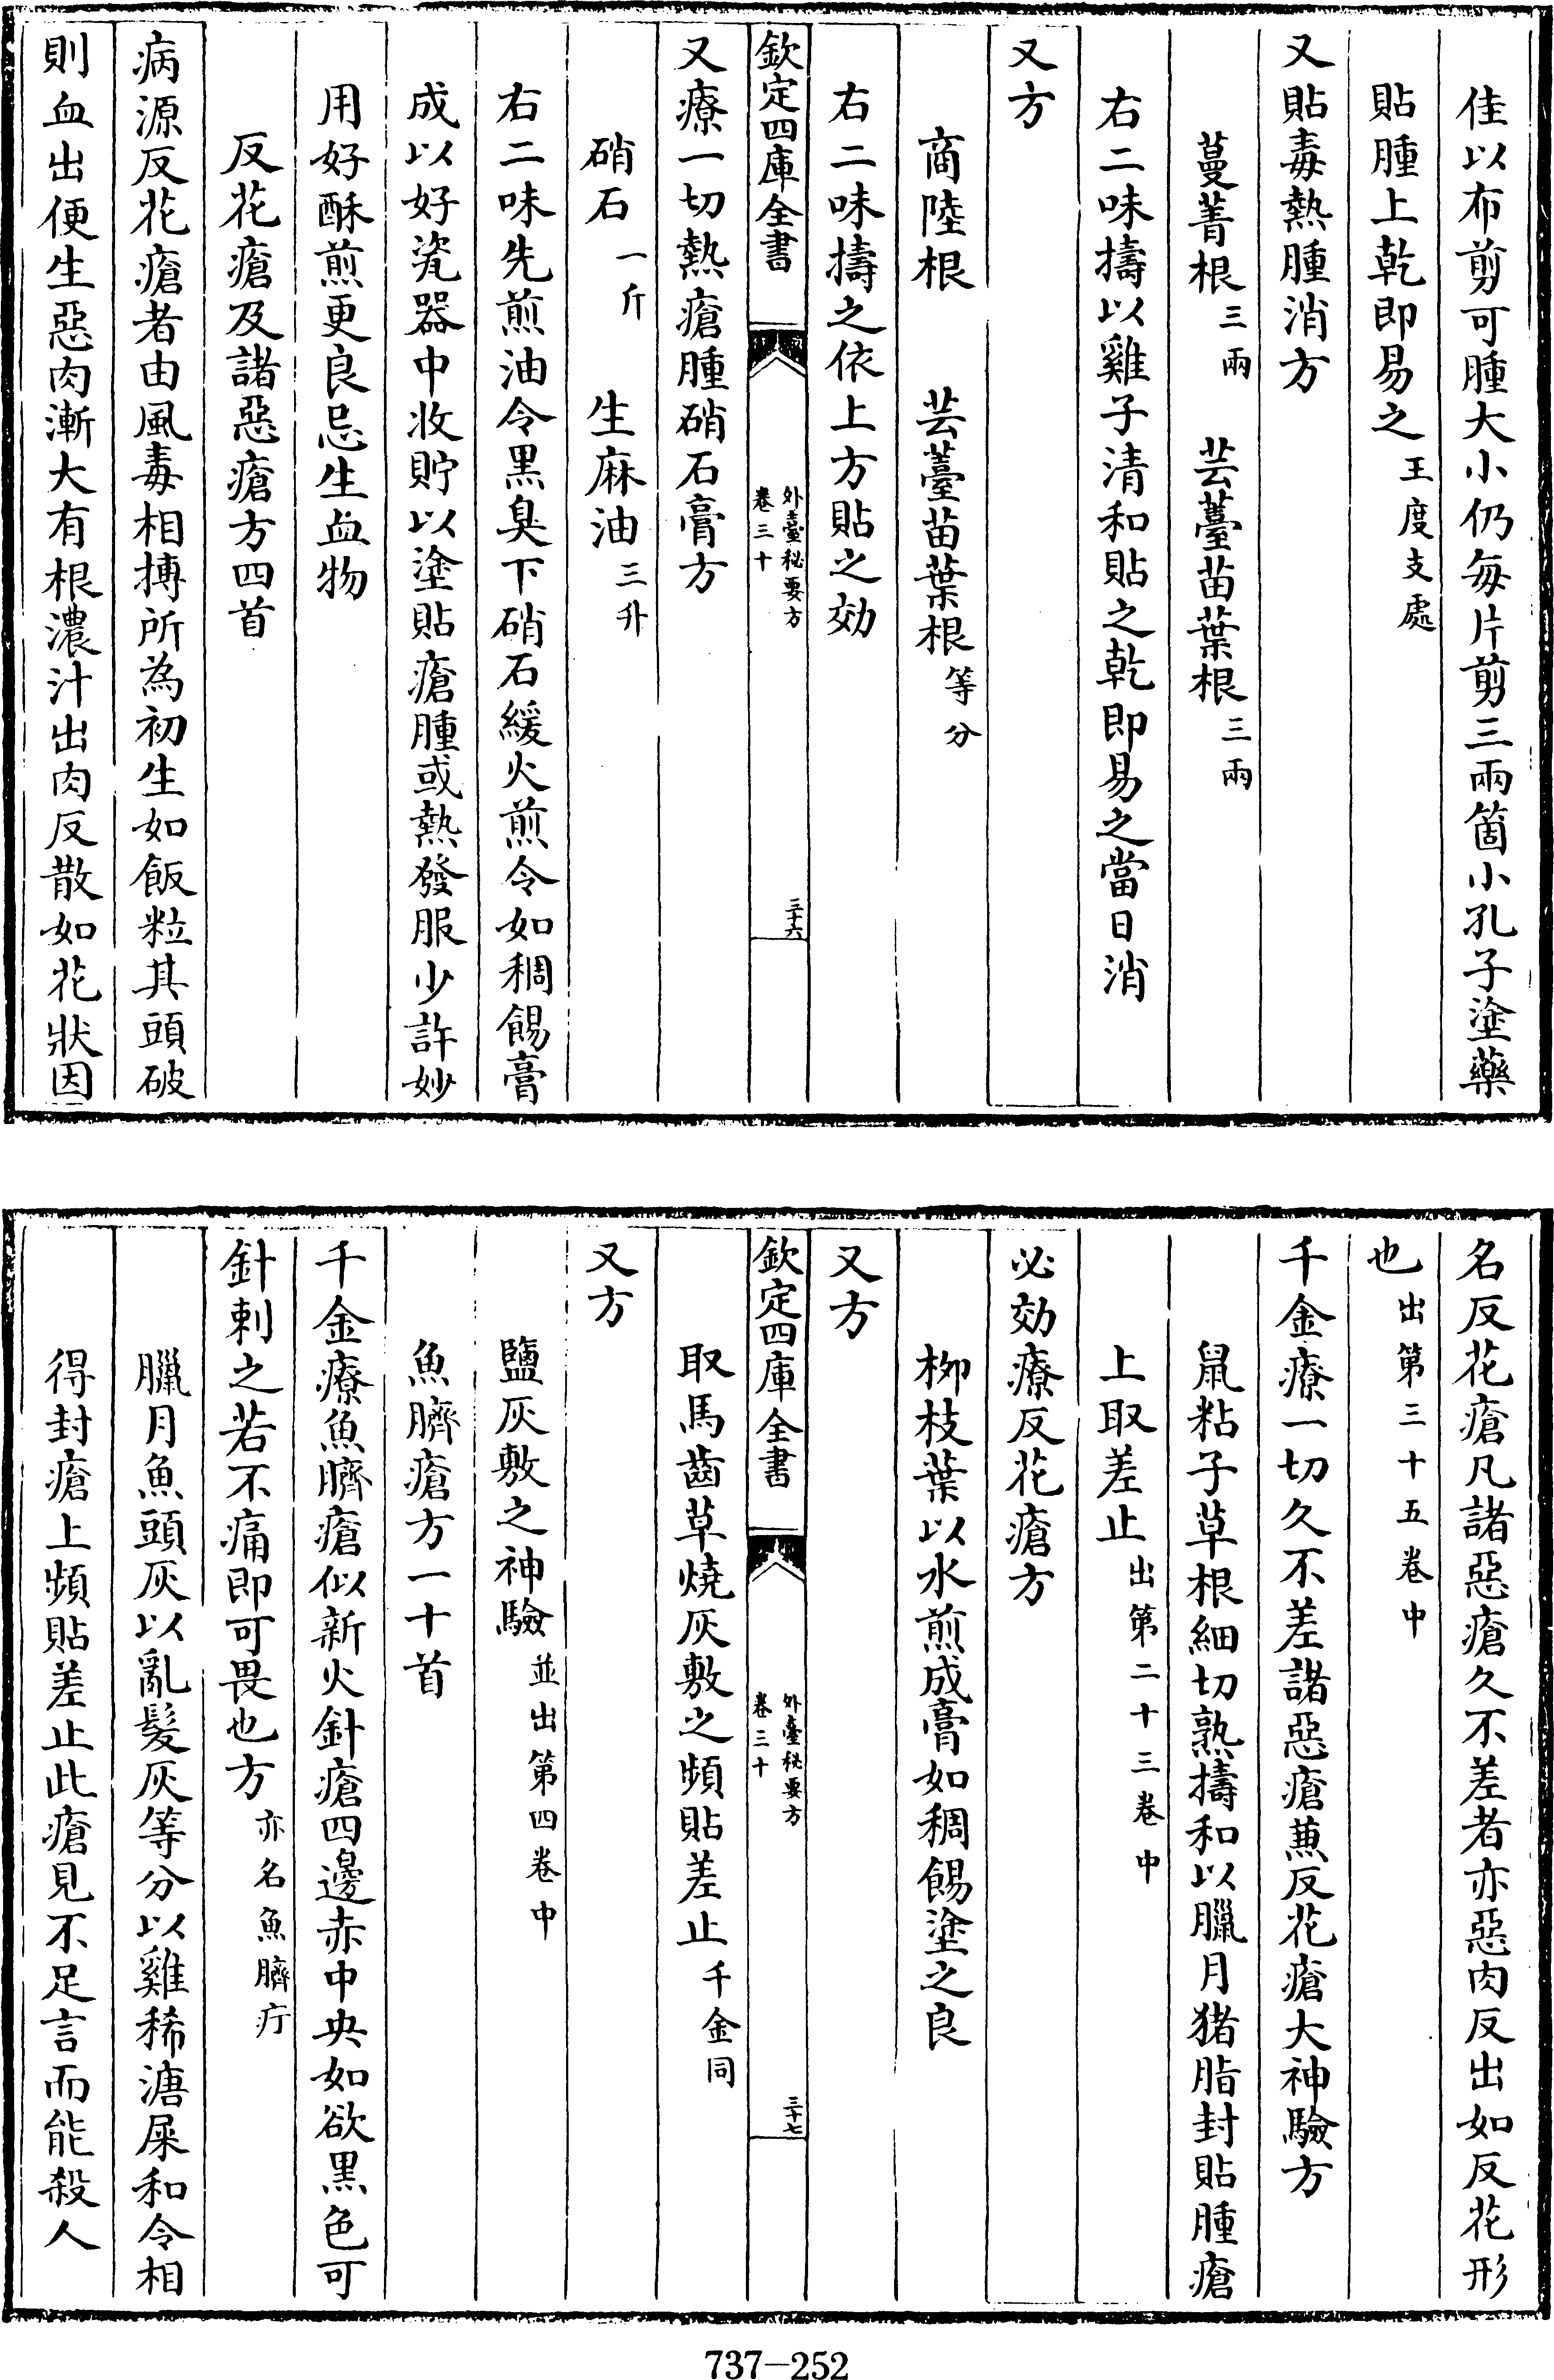 佳以布剪可腫大小仍每片剪三兩箇小孔子塗藥
貼腫上乾即易之王度支處
又貼毒熱腫消方
蔓菁根三兩 芸薹苗葉根三兩
右二味擣以雞子清和貼之乾即易之當日消
又方
商陸根 芸薹苗葉根等分
右二味擣之依上方貼之効
欽定四庫全書 外臺秘要方卷三十 三十六
又療一切熱瘡腫硝石膏方
硝石一斤 生麻油三升
右二味先煎油令黑臭下硝石緩火煎令如稠餳膏
成以好瓷器中收貯以塗貼瘡腫或熱發服少許妙
用好酥煎更良忌生血物
反花瘡及諸惡瘡方四首
病源反花瘡者由風毒相搏所為初生如飯粒其頭破
則血出便生惡肉漸大有根濃汁出肉反散如花狀因
名反花瘡凡諸惡瘡久不差者亦惡肉反出如反花形
也出第三十五卷中
千金療一切久不差諸惡瘡蕪反花瘡大神驗方
鼠粘子草根細切熟擣和以臘月猪脂封貼腫瘡
上取差止出第二十三卷中
必効療反花瘡方
柳枝葉以水煎成膏如稠餳塗之良
又方
欽定四庫全書 外臺秘要方卷三十 三十七
取馬齒草燒灰敷之頻貼差止千金同
又方
鹽灰敷之神驗並出第四卷中
魚臍瘡方一十首
千金療魚臍瘡似新火針瘡四邊赤中央如欲黑色可
針刺之若不痛即可畏也方亦名魚臍疔
臘月魚頭灰以亂髮灰等分以雞稀溏屎和令相
得封瘡上頻貼差止此瘡見不足言而能殺人
737-252